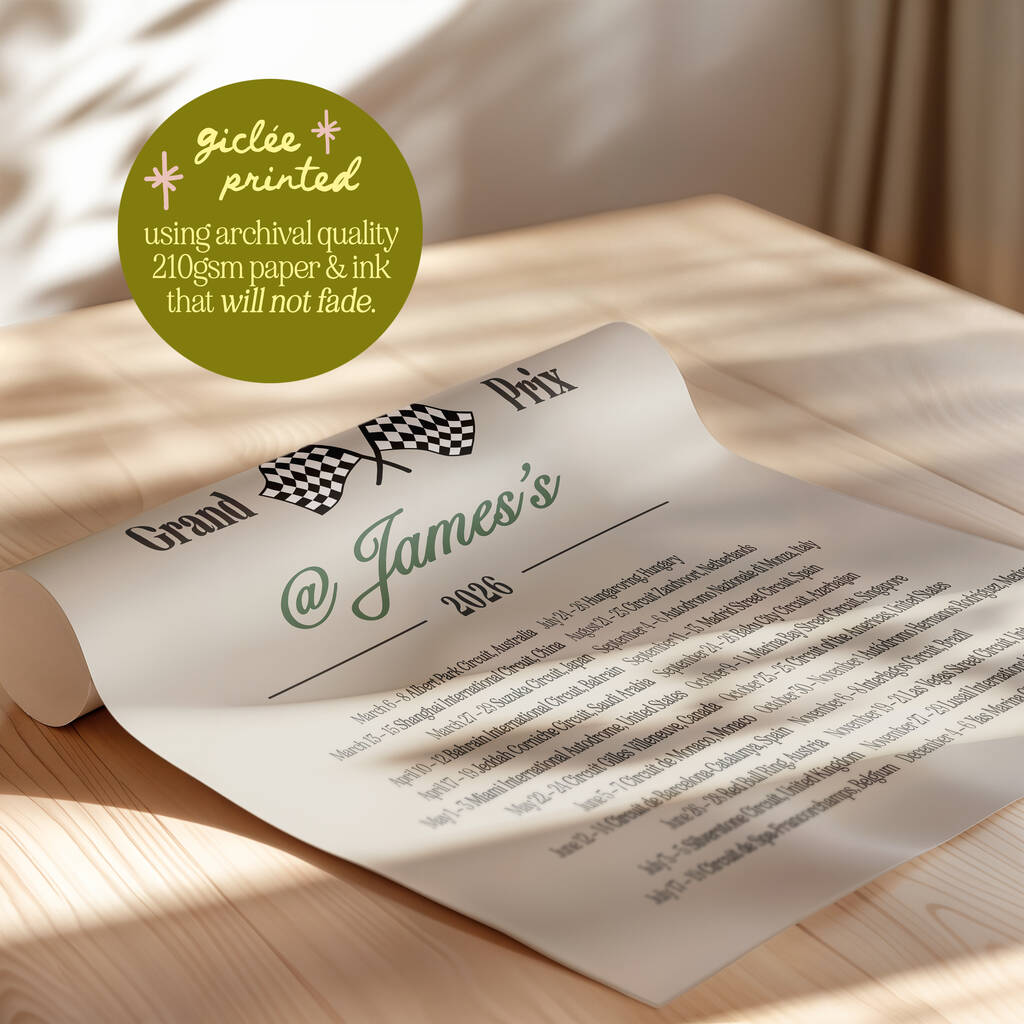 giclée
printed
using archival quality
210gsm paper & ink
that will not fade.
Grand Prix
@ James's
2026
March 6 – 8 Albert Park Circuit, Australia
March 13 – 15 Shanghai International Circuit, China
March 27 – 29 Suzuka Circuit, Japan
April 10 – 12 Bahrain International Circuit, Bahrain
April 17 – 19 Jeddah Corniche Circuit, Saudi Arabia
May 1 – 3 Miami International Autodrome, United States
May 22 – 24 Circuit Gilles Villeneuve, Canada
June 5 – 7 Circuit de Monaco, Monaco
June 12 – 14 Circuit de Barcelona-Catalunya, Spain
June 26 – 28 Red Bull Ring, Austria
July 3 – 5 Silverstone Circuit, United Kingdom
July 17 – 19 Circuit de Spa-Francorchamps, Belgium
July 24 – 26 Hungaroring, Hungary
August 21 – 23 Circuit Zandvoort, Netherlands
September 4 – 6 Autodromo Nazionale di Monza, Italy
September 11 – 13 Madrid Street Circuit, Spain
September 24 – 26 Baku City Circuit, Azerbaijan
October 9 – 11 Marina Bay Street Circuit, Singapore
October 23 – 25 Circuit of the Americas, United States
October 30 – November 1 Autódromo Hermanos Rodríguez,
November 6 – 8 Interlagos Circuit, Brazil
November 19 – 21 Las Vegas Street Circuit,
November 27 – 29 Lusail International
December 4 – 6 Yas Marina